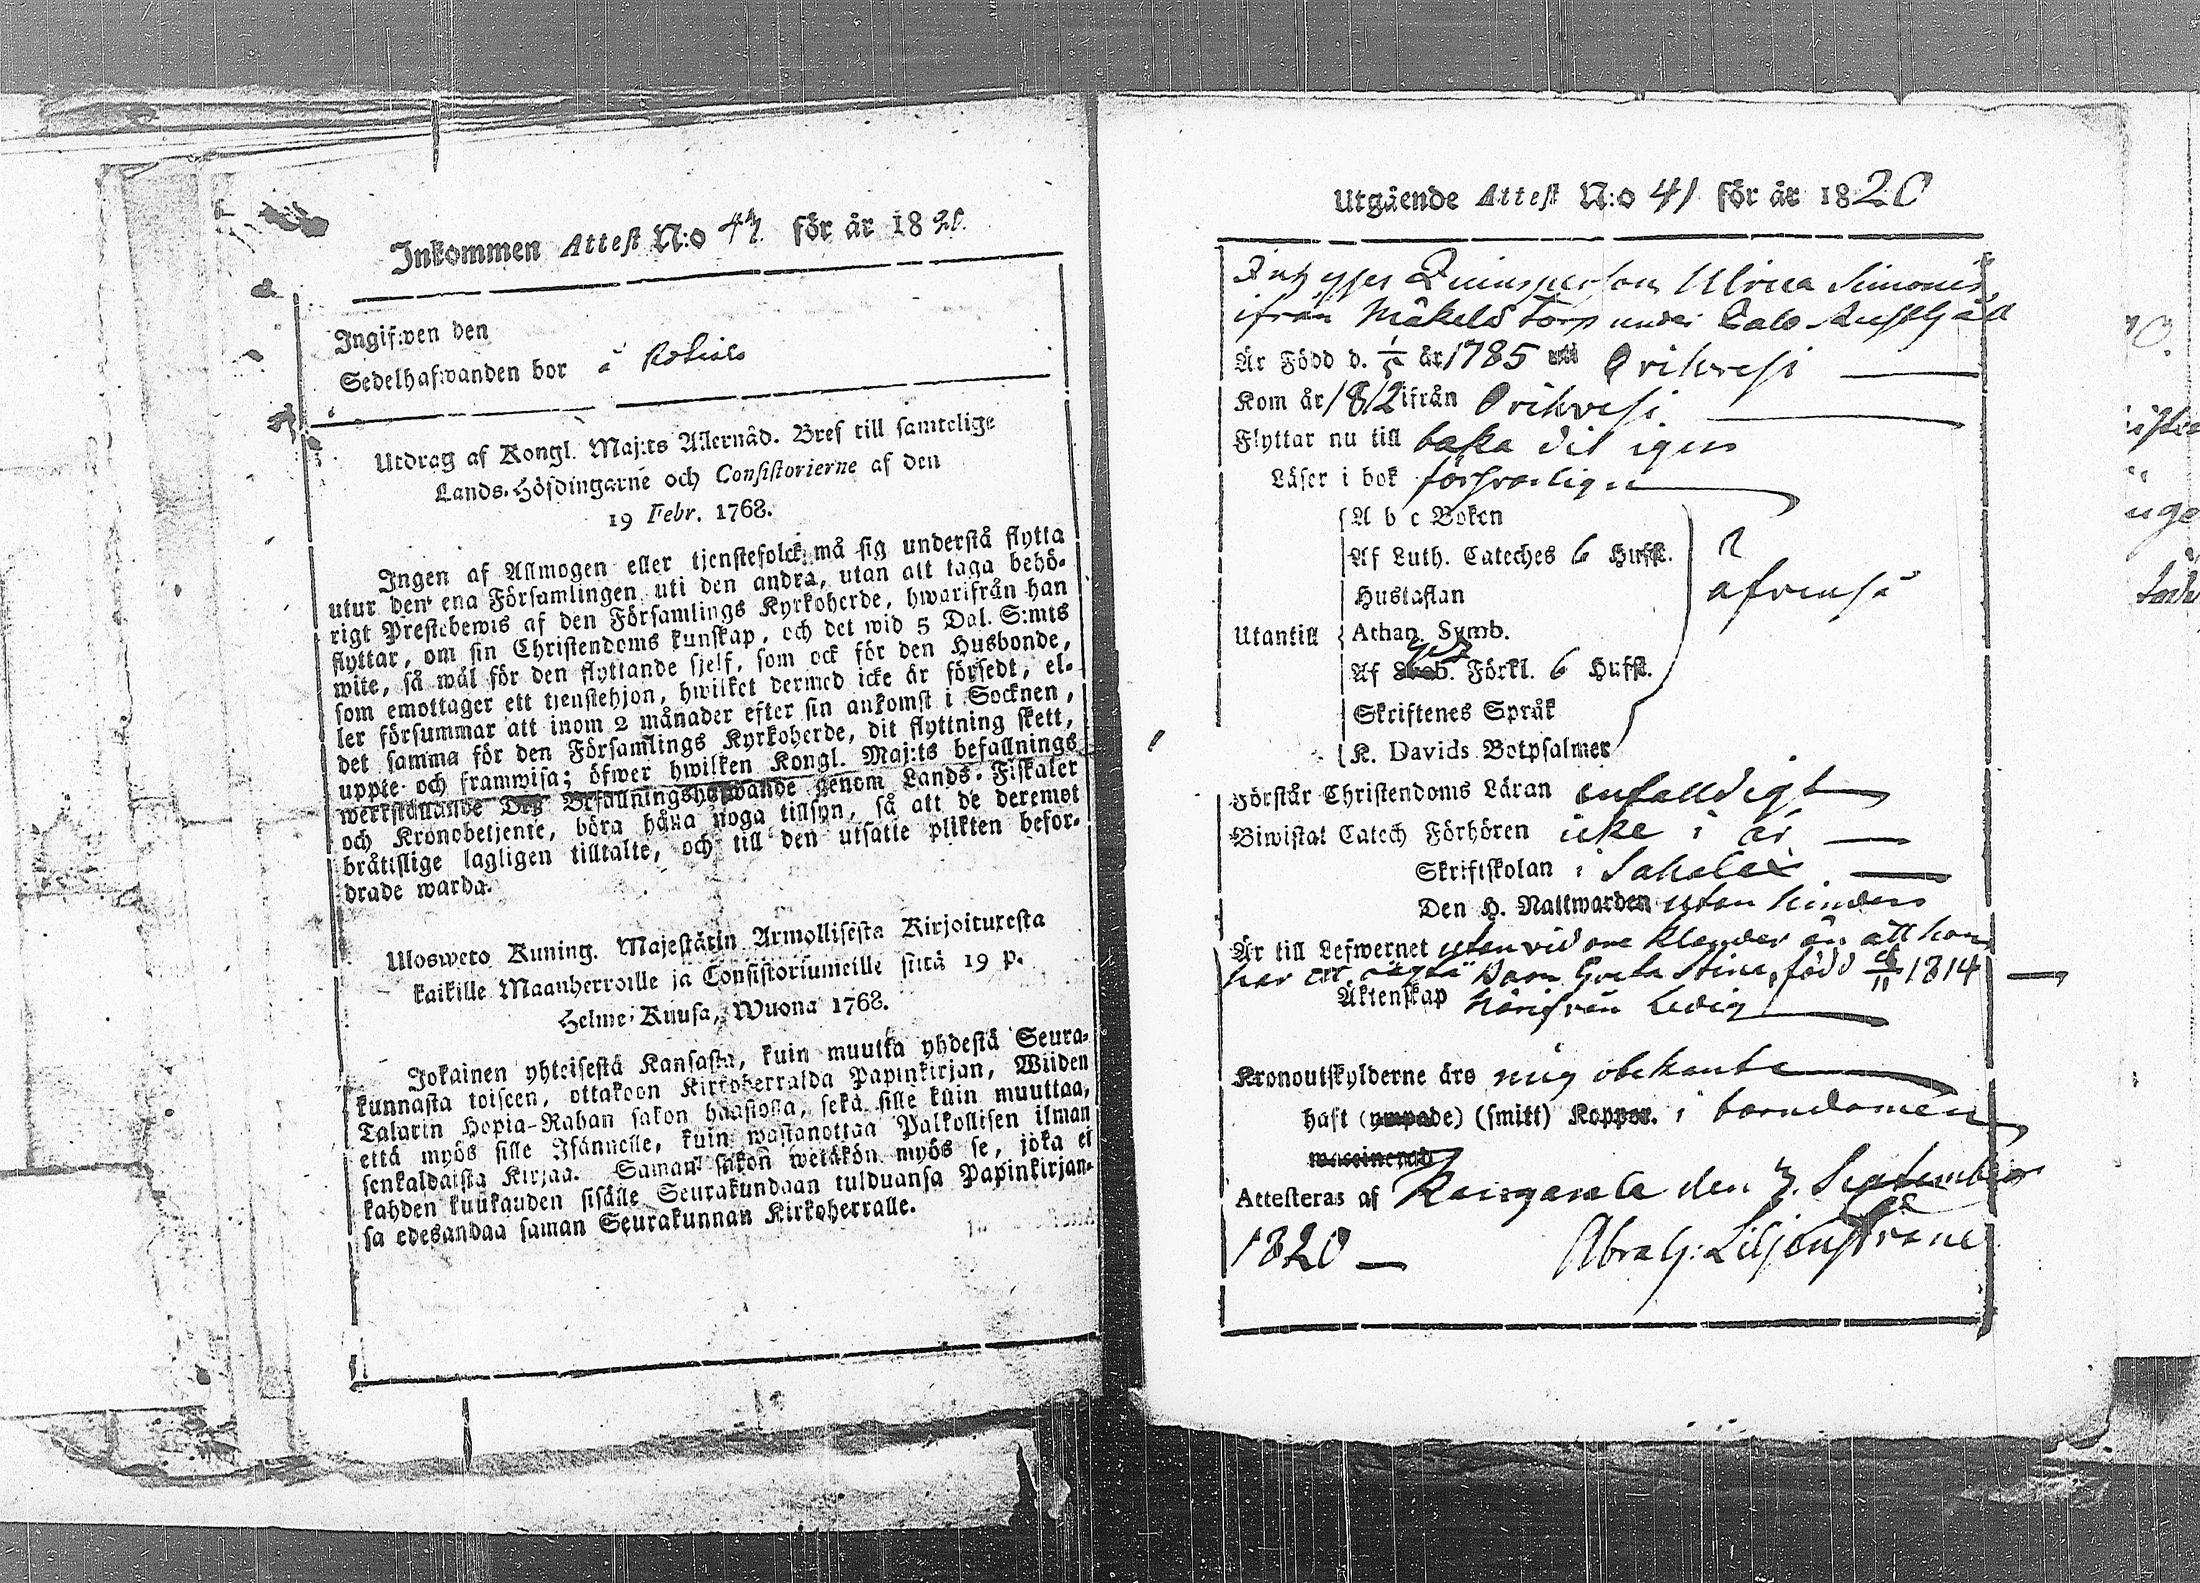 Inkommen Attest N:o 47. för år 1820.
Ingifwen den
Sedelhafwanden bor å
Utdrag af Kongl. Maj:ts Allernåd. Bref till samtelige
Lands-Höfdingarne och Consistorierne af den
19 Febr. 1768.
Ingen af Allmogen eller tjenstefolck må sig understå flytta
utur den ena Församlingen uti den andra, utan att taga behö-
rigt Prestebewis af den Församlings Kyrkoherde, hwarifrån han
flyttar, om sin Christendoms kunskap, och det wid 5 Dal. S:mts
wite, så wäl för den flyttande sjelf, som ock för den Husbonde,
som emottager ett tjenstehjon, hwilket dermed icke är försedt, el-
ler försummar att inom 2 månader efter sin ankomst i Socknen,
det samma för den Församlings Kyrkoherde, dit flyttning skett,
uppte och framwisa; öfwer hwilken Kongl. Maj:ts befallnings
werkställande Deß Befallningshafwande genom Lands-Fiskaler
och Kronobetjente, böra hålla noga tillsyn, så att de deremot
bråttslige lagligen tilltalte, och till den utsatte plikten befor-
drade warda.
Ulosweto Kuning. Majestätin Armollisesta Kirjoituxesta
kaikille Maanherroille ja Consistoriumeille siitä 19 p.
Helme-Kuusa, Wuona 1768.
Jokainen yhteisestä Kansasta, kuin muutta yhdestä Seura-
kunnasta toiseen, ottakoon Kirkoherralda Papinkirjan, Wiiden
Talarin Hopia-Rahan sakon haastolla, sekä sille kuin muuttaa,
että myös sille Isännelle, kuin wastanottaa Palkollisen ilman
senkaldaista Kirjaa. Saman sakon wetäkön myös se, joka ei
kahden kuukauden sisälle Seurakundaan tulduansa Papinkirjan-
sa edesandaa saman Seurakunnan Kirkoherralle.
Utgående Attest N:o 41 för år 1820
Ulrica Simonsd.
ifrån Mäkelä Torp under
Är Född d. 1/5 år 1785 Orihvesi
Kom år 1812 ifrån Orihvesi
Flyttar nu till baka dit igen
Läser i bok försvarligen
A b c Boken
Af Luth. Cateches 6 Hufst.
Hustaflan
Utantill Athan. Symb.
Af Förkl. 6 Hufst.
Skriftenes Språk
K. Davids Botpsalmer
Förstår Christendoms Läran enfalldigt
Biwistat Catech Förhören icke i år
Skriftskolan i Sahalax
Den H. Nattwarden utan hinder
Är till Lefwernet utan vidare klander än att hon
har ett oägta Barn Greta Stina, född 1814
Äktenskap härifrån ledig
Kronoutskylderne äro mig obekante
haft (ympade) (smitt) Koppor. i barndomen
Attesteras af Kangasala den 7. September
1820 Abrah: Liljenstrand